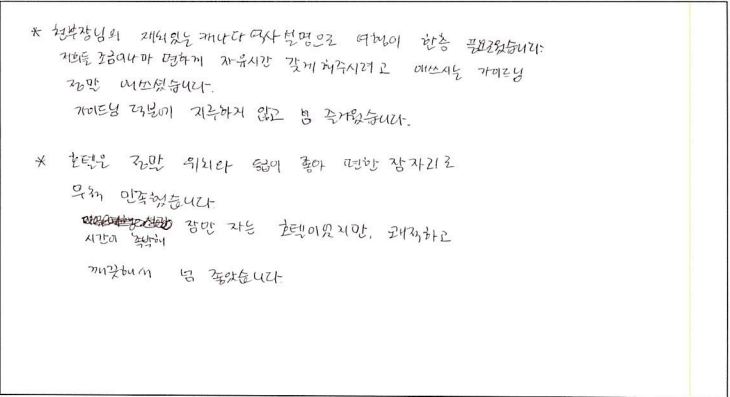 * 현부장님의 재미있는 캐나다 역사 설명으로 여행이 한층 풍요로웠습니다.
저희들 조금이나마 편하게 자유시간 갖게 해주시려고 애쓰시는 가이드님
정말 애쓰셨습니다.
가이드님 덕분에 지루하지 않고 넘 즐거웠습니다.
* 호텔은 정말 위치와 급이 좋아 편한 잠자리로
무척 만족했습니다
시간이 촉박해 잠만 자는 호텔이었지만, 쾌적하고
깨끗해서 넘 좋았습니다